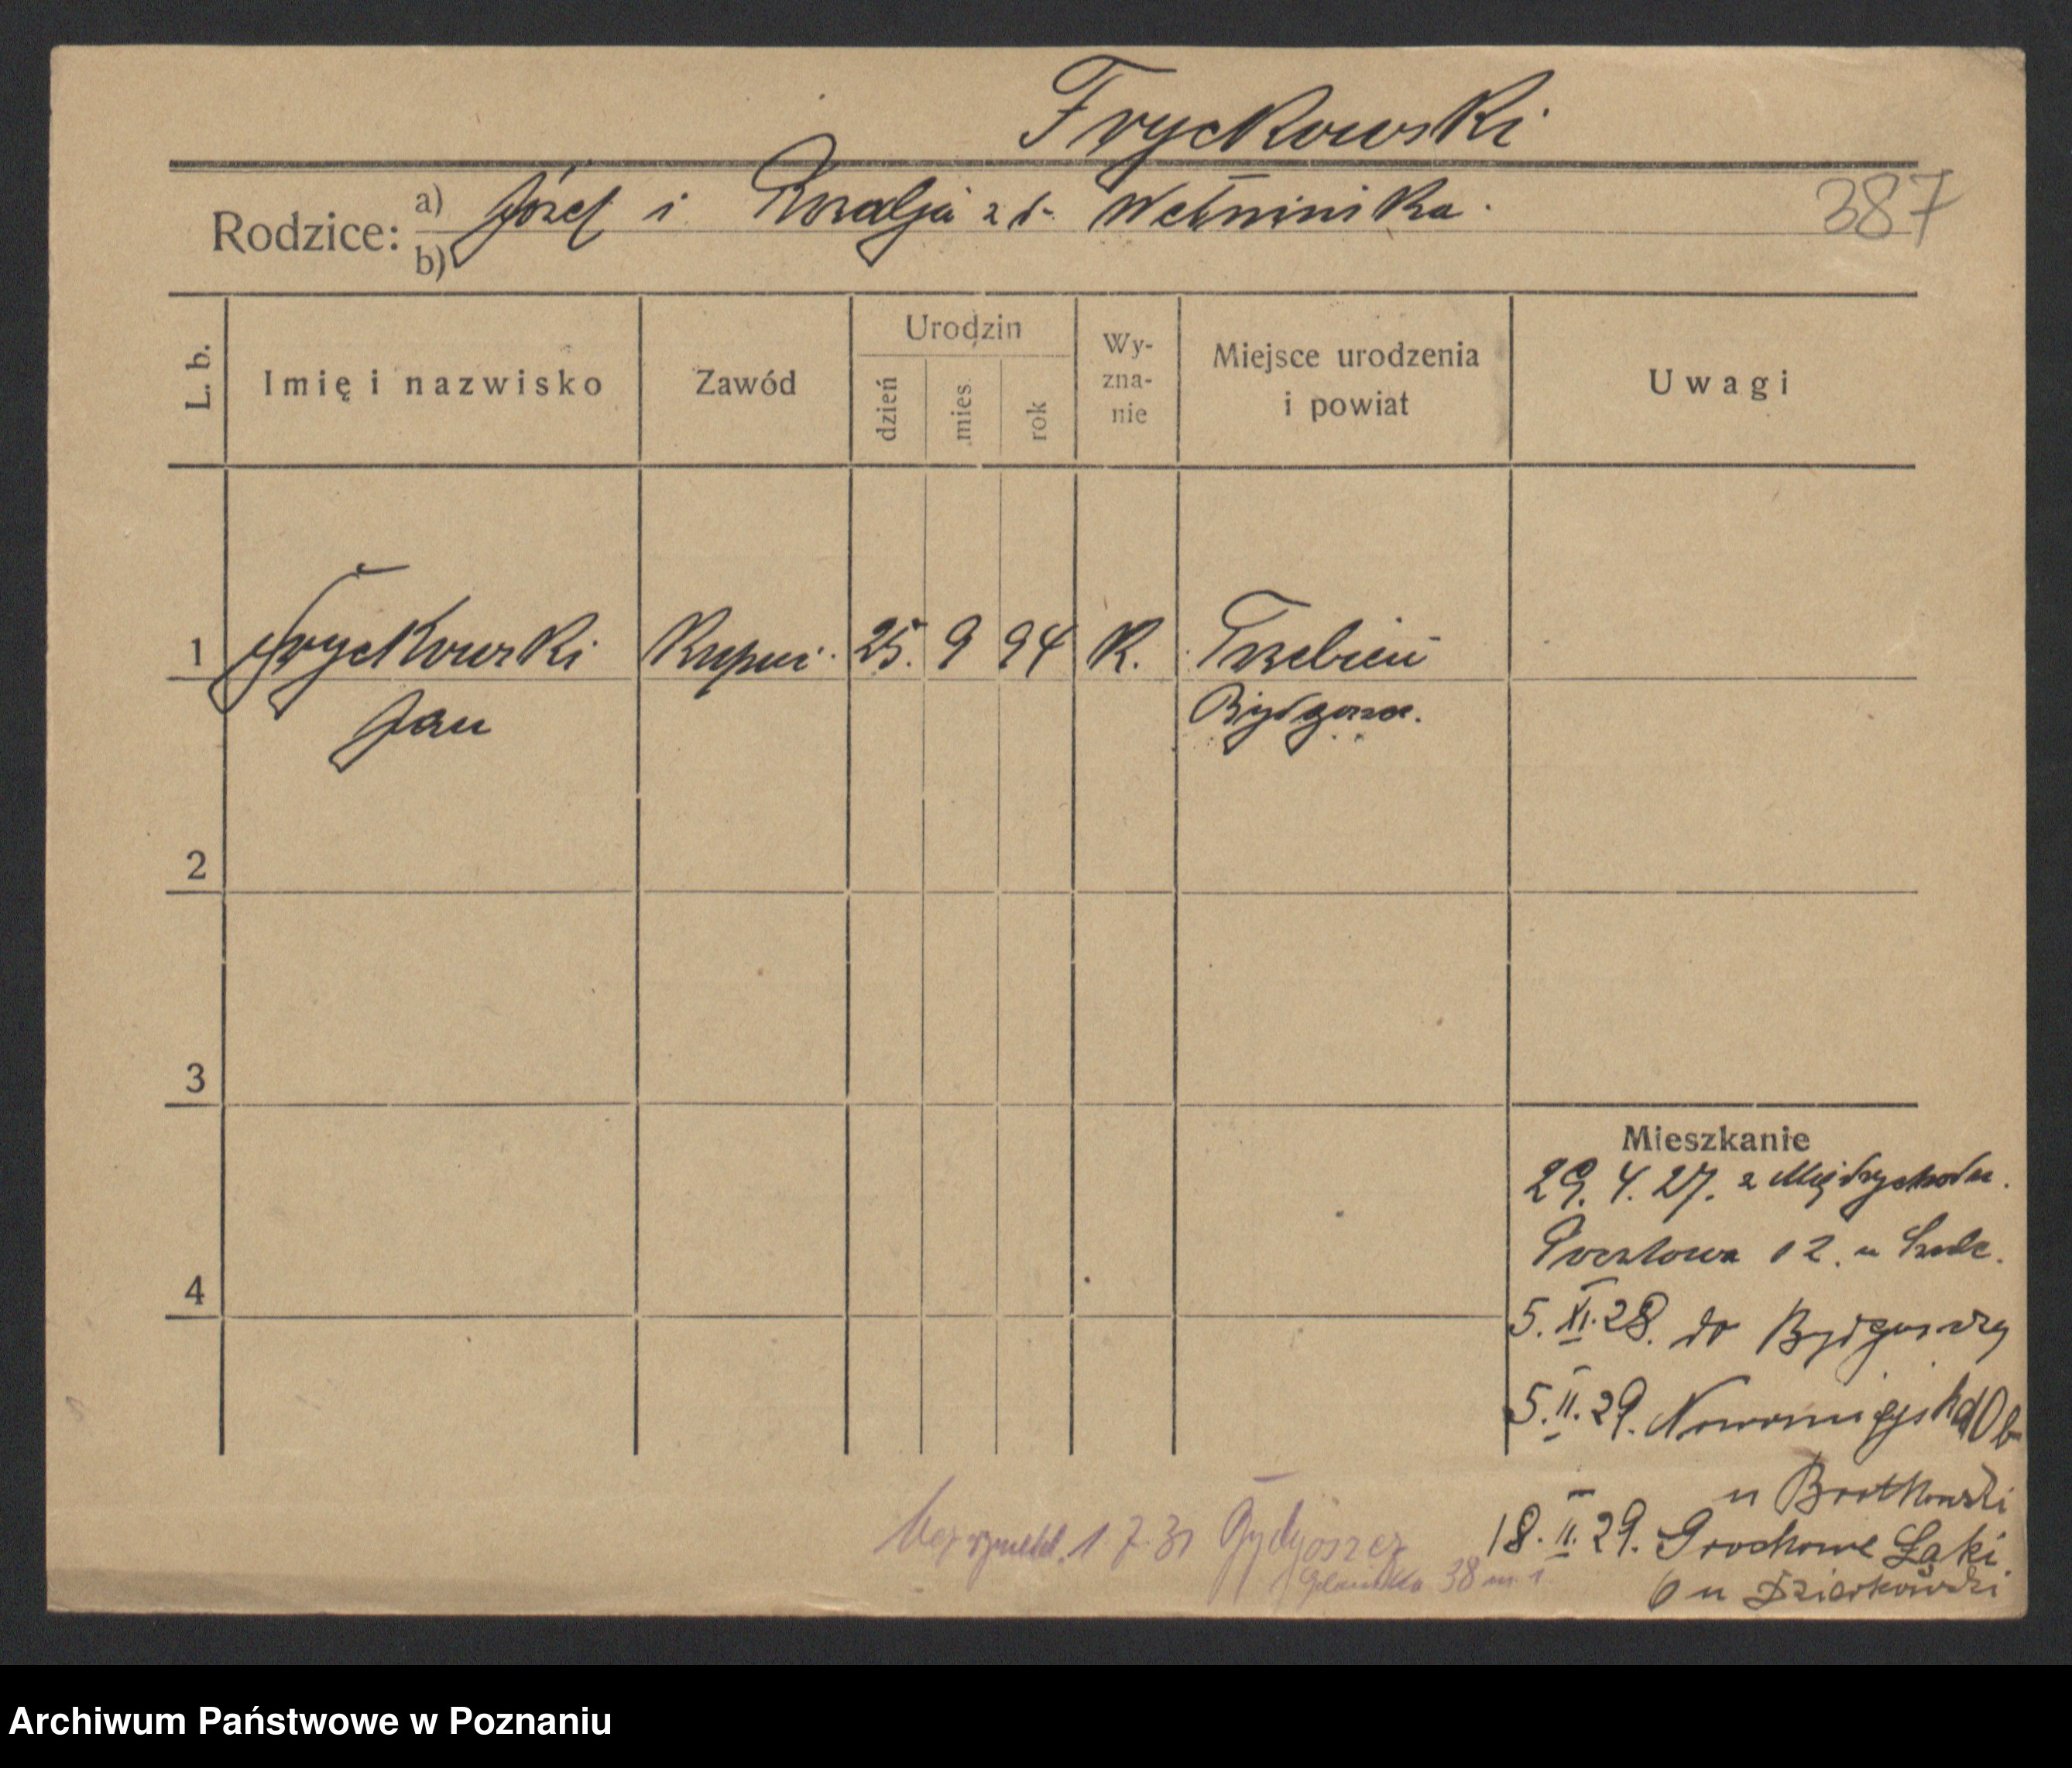 Fryckowski
Rodzice: a) Józef i Rozalja z d. Wełninska.
b)
387
L. b. Imię i nazwisko Zawód Urodzin dzień mies. rok Wy-zna-nie Miejsce urodzenia i powiat Uwagi
1 Fryckowski Kupiec 25. 9 94 K. Trzebień
Jan Bydgoszcz.
2
3
4
Mieszkanie
29. 4. 27. z Międzychodu.
Pocztowa 12. u
5. XI. 28. do Bydgoszczy
5. II. 29. Nowomiejska
u
18. II. 29. Grochowe Łąki
6 u Dzierkowski
1. 7. 31 Bydgoszcz
Gdańska 38 m. 1
Archiwum Państwowe w Poznaniu